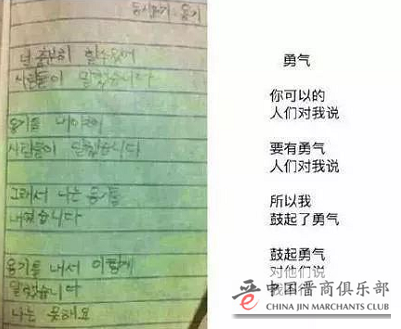 용기
넌 충분히 할 수 있어
사람들이 말했습니다
용기를 내야 해
사람들이 말했습니다
그래서 나는 용기를
내었습니다
용기를 내서 이렇게
말했습니다
나는 못해요
勇气
你可以的
人们对我说
要有勇气
人们对我说
所以我
鼓起了勇气
鼓起勇气
对他们说
中国晋商俱乐部
CHINA JIN MARCHANTS CLUB